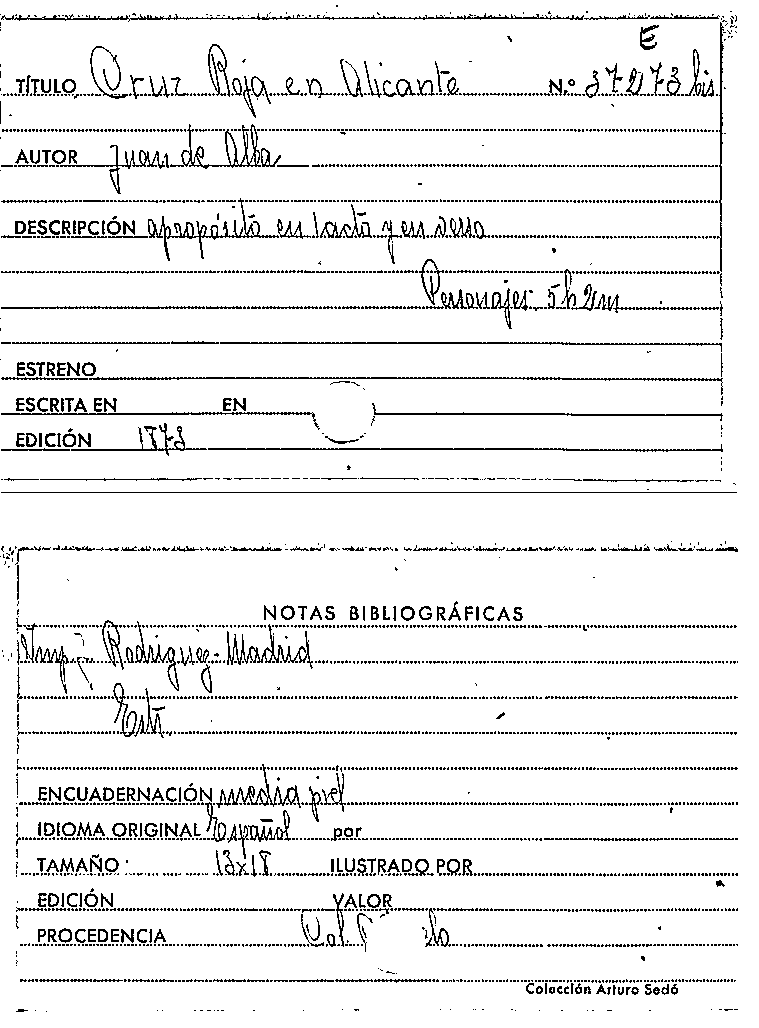 E
TÍTULO Cruz Roja en Alicante N.º 37273 bis
AUTOR Juan de Alba
DESCRIPCIÓN apropósito en 1 acto y en verso
Personajes: 5h 2m
ESTRENO
ESCRITA EN EN
EDICIÓN 1873
NOTAS BIBLIOGRÁFICAS
Imp. Rodriguez-Madrid
ENCUADERNACIÓN media piel
IDIOMA ORIGINAL Español por
TAMAÑO 13x18 ILUSTRADO POR
EDICIÓN VALOR
PROCEDENCIA
Colección Arturo Sedó